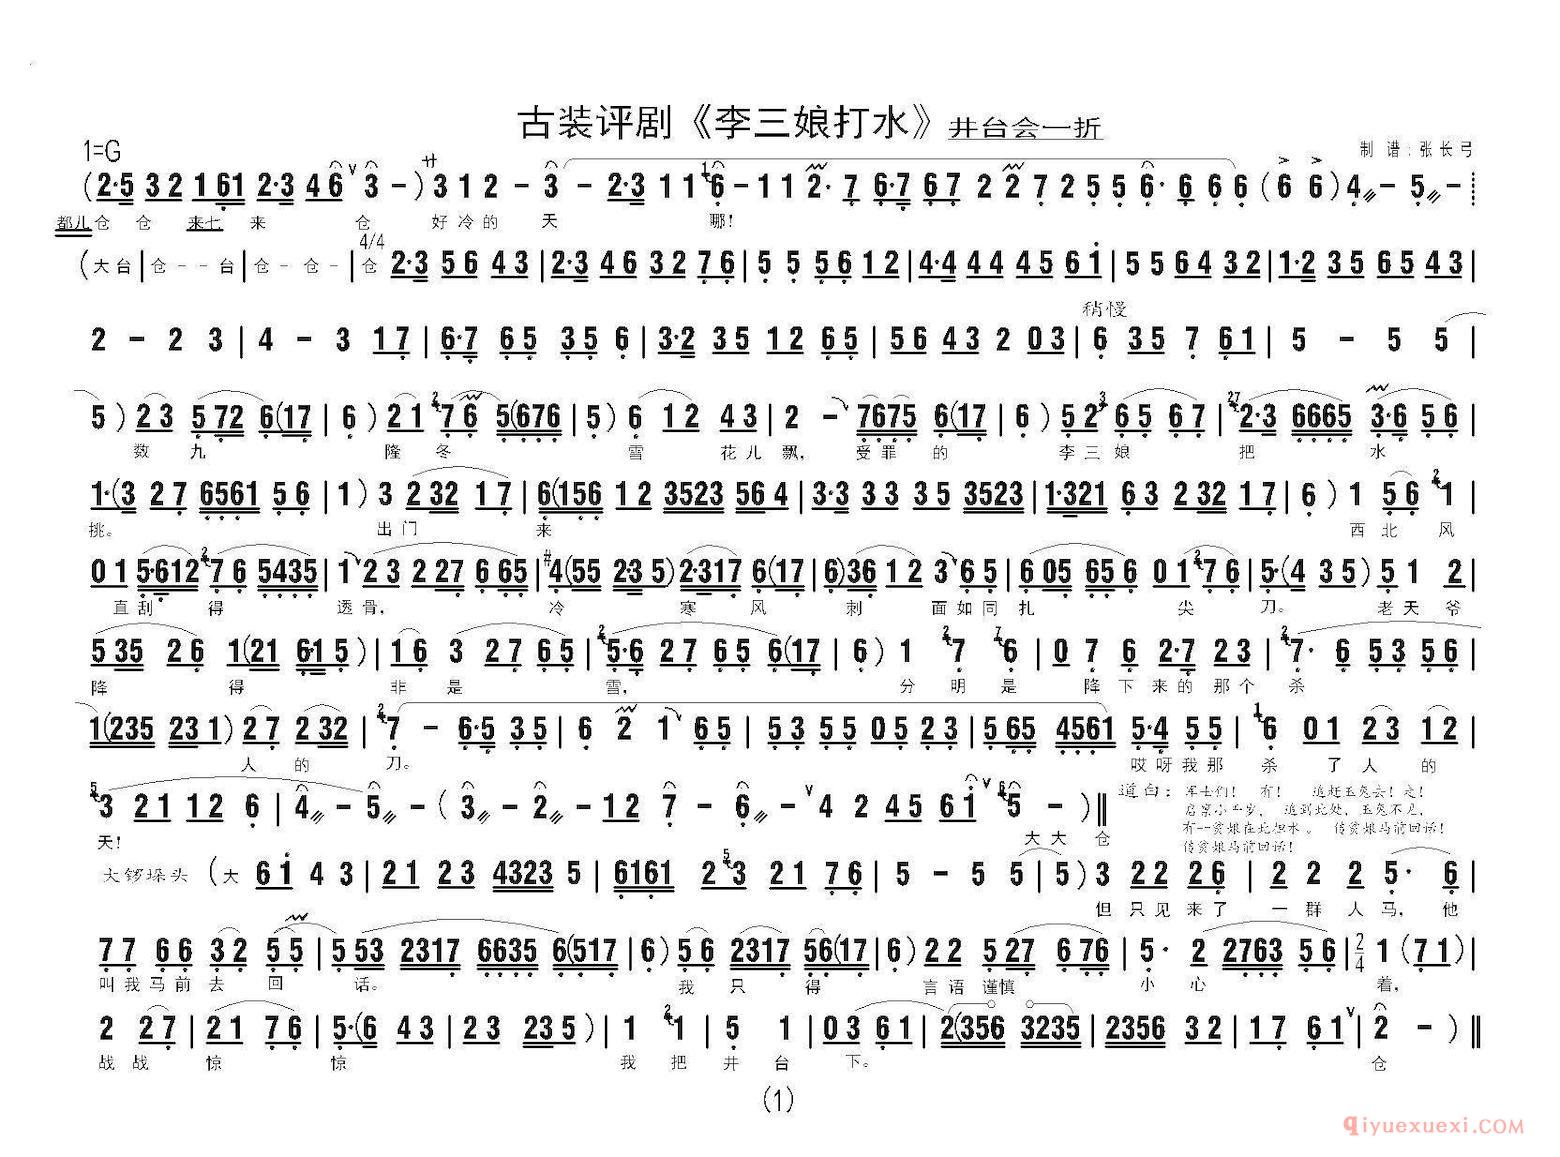 古装评剧《李三娘打水》井台会一折
1=G
制谱:张长弓
(2·5 32 161 2·3 46 3 -) 廿 3 1 2 - 3 - 2·3 1 1 6 - 1 1 2· 7 6·7 67 2 2 7 2 5 5 6· 6 6 6 (6 6) 4 - 5 -
都儿仓 仓 来七来 仓 好冷的天 哪!
4/4
(大台|仓--台|仓-仓-|仓 2·3 56 43|2·3 46 32 76|5 5 56 12|4·4 44 45 61|55 64 32|1·2 35 65 43|
稍慢
2 - 2 3|4 - 3 17|6·7 65 35 6|3·2 35 12 65|56 43 2 03|6 35 7 61|5 - 5 5|
5) 23 572 6(17|6) 21 76 5(676|5) 6 12 43|2 - 7675 6(17|6) 52 65 67|2·3 6665 3·6 56|
数九 隆冬 雪花儿飘, 受罪的 李三娘 把水
1·(3 27 6561 56|1) 3 232 17|6(156 12 3523 564|3·3 33 35 3523|1·321 63 232 17|6) 1 56 1|
挑。 出门 来 西北风
01 5·612 76 5435|1 23 227 665|4(55 23 5) 2·317 6(17|6)36 12 3 65|605 656 01 76|5·(4 35) 51 2|
直刮 得 透骨, 冷 寒风 刺 面如同扎 尖刀。 老天爷
535 26 1(21 6·1 5)|16 3 27 65|5·6 27 65 6(17|6) 1 7 6|07 6 2·7 23|7· 6 53 56|
降 得 非是 雪, 分明是 降下来的那个杀
1(235 23 1) 27 232|7 - 6·5 35|6 2 1 65|53 55 05 23|565 4561 5·4 55|6 01 23 12|
人的 刀。 哎呀我那 杀了人的
3 21 12 6|4 - 5 - (3 - 2 - 12 7 - 6 - 4 2 45 61 5 -)‖
天! 大大仓
道白: 军士们! 有! 追赶玉兔去! 走!
启禀小千岁, 追到此处, 玉兔不见,
有一贫娘在此担水。 传贫娘马前回话!
传贫娘马前回话!
大锣垛头 (大 61 43|21 23 4323 5|6161 23 21 76|5 - 5 5|5) 3 22 26|2 2 2 5· 6|
但只见来了 一群人马, 他
77 66 32 55|553 2317 6635 6(517|6) 56 2317 56(17|6) 22 527 676|5· 2 2763 56|2/4 1 (71)|
叫我马前去回 话。 我只得 言语谨慎 小心 着,
2 27|21 76|5·(6 43|23 235)|1 1|5 1|03 61|2(356 3235|2356 32|17 61|2 -)‖
战战 惊 惊 我把井台 下。 仓
(1)
qiyuexuexi.COM